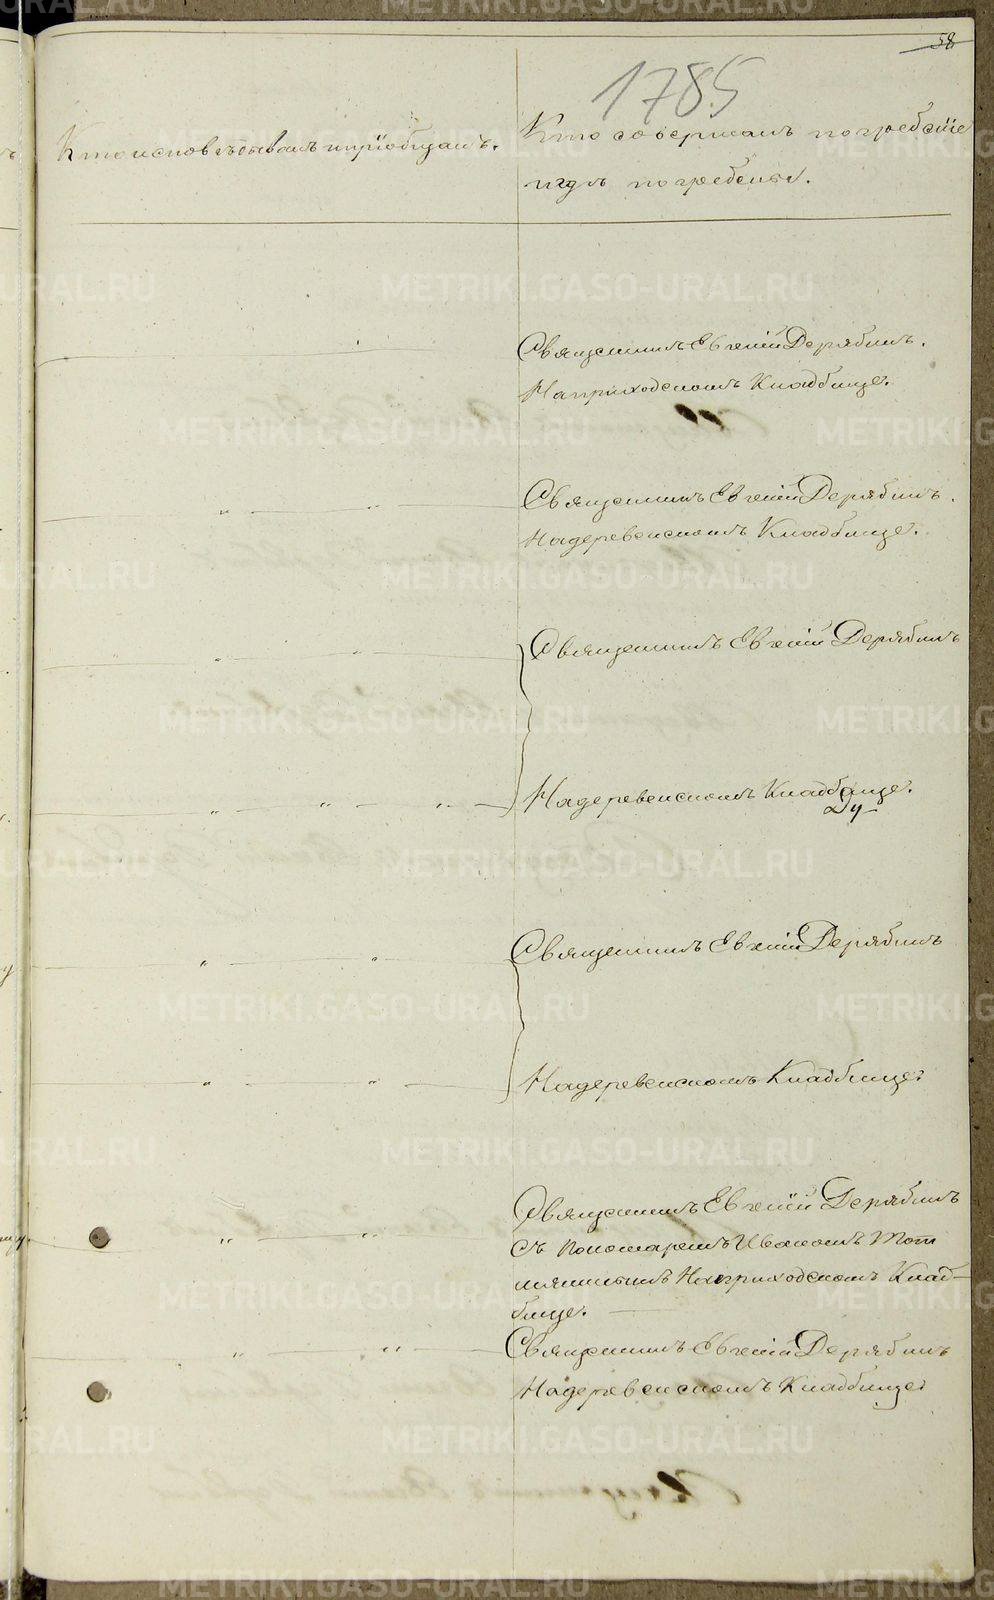 58
1785
Кто исповѣдывалъ и пріобщалъ.
Кто совершалъ погребеніе
и гдѣ погребены.
Священникъ Евгеній Дерябинъ.
На приходскомъ Кладбище.
Священникъ Евгеній Дерябинъ.
На деревенскомъ Кладбище.
Священникъ Евгеній Дерябинъ
На деревенскомъ Кладбище.
Священникъ Евгеній Дерябинъ
На деревенскомъ Кладбище.
Священникъ Евгеній Дерябинъ
съ Пономаремъ Иваномъ
На приходскомъ Клад-
бище.
Священникъ Евгеній Дерябинъ
На деревенскомъ Кладбище
METRIKI.GASO-URAL.RU